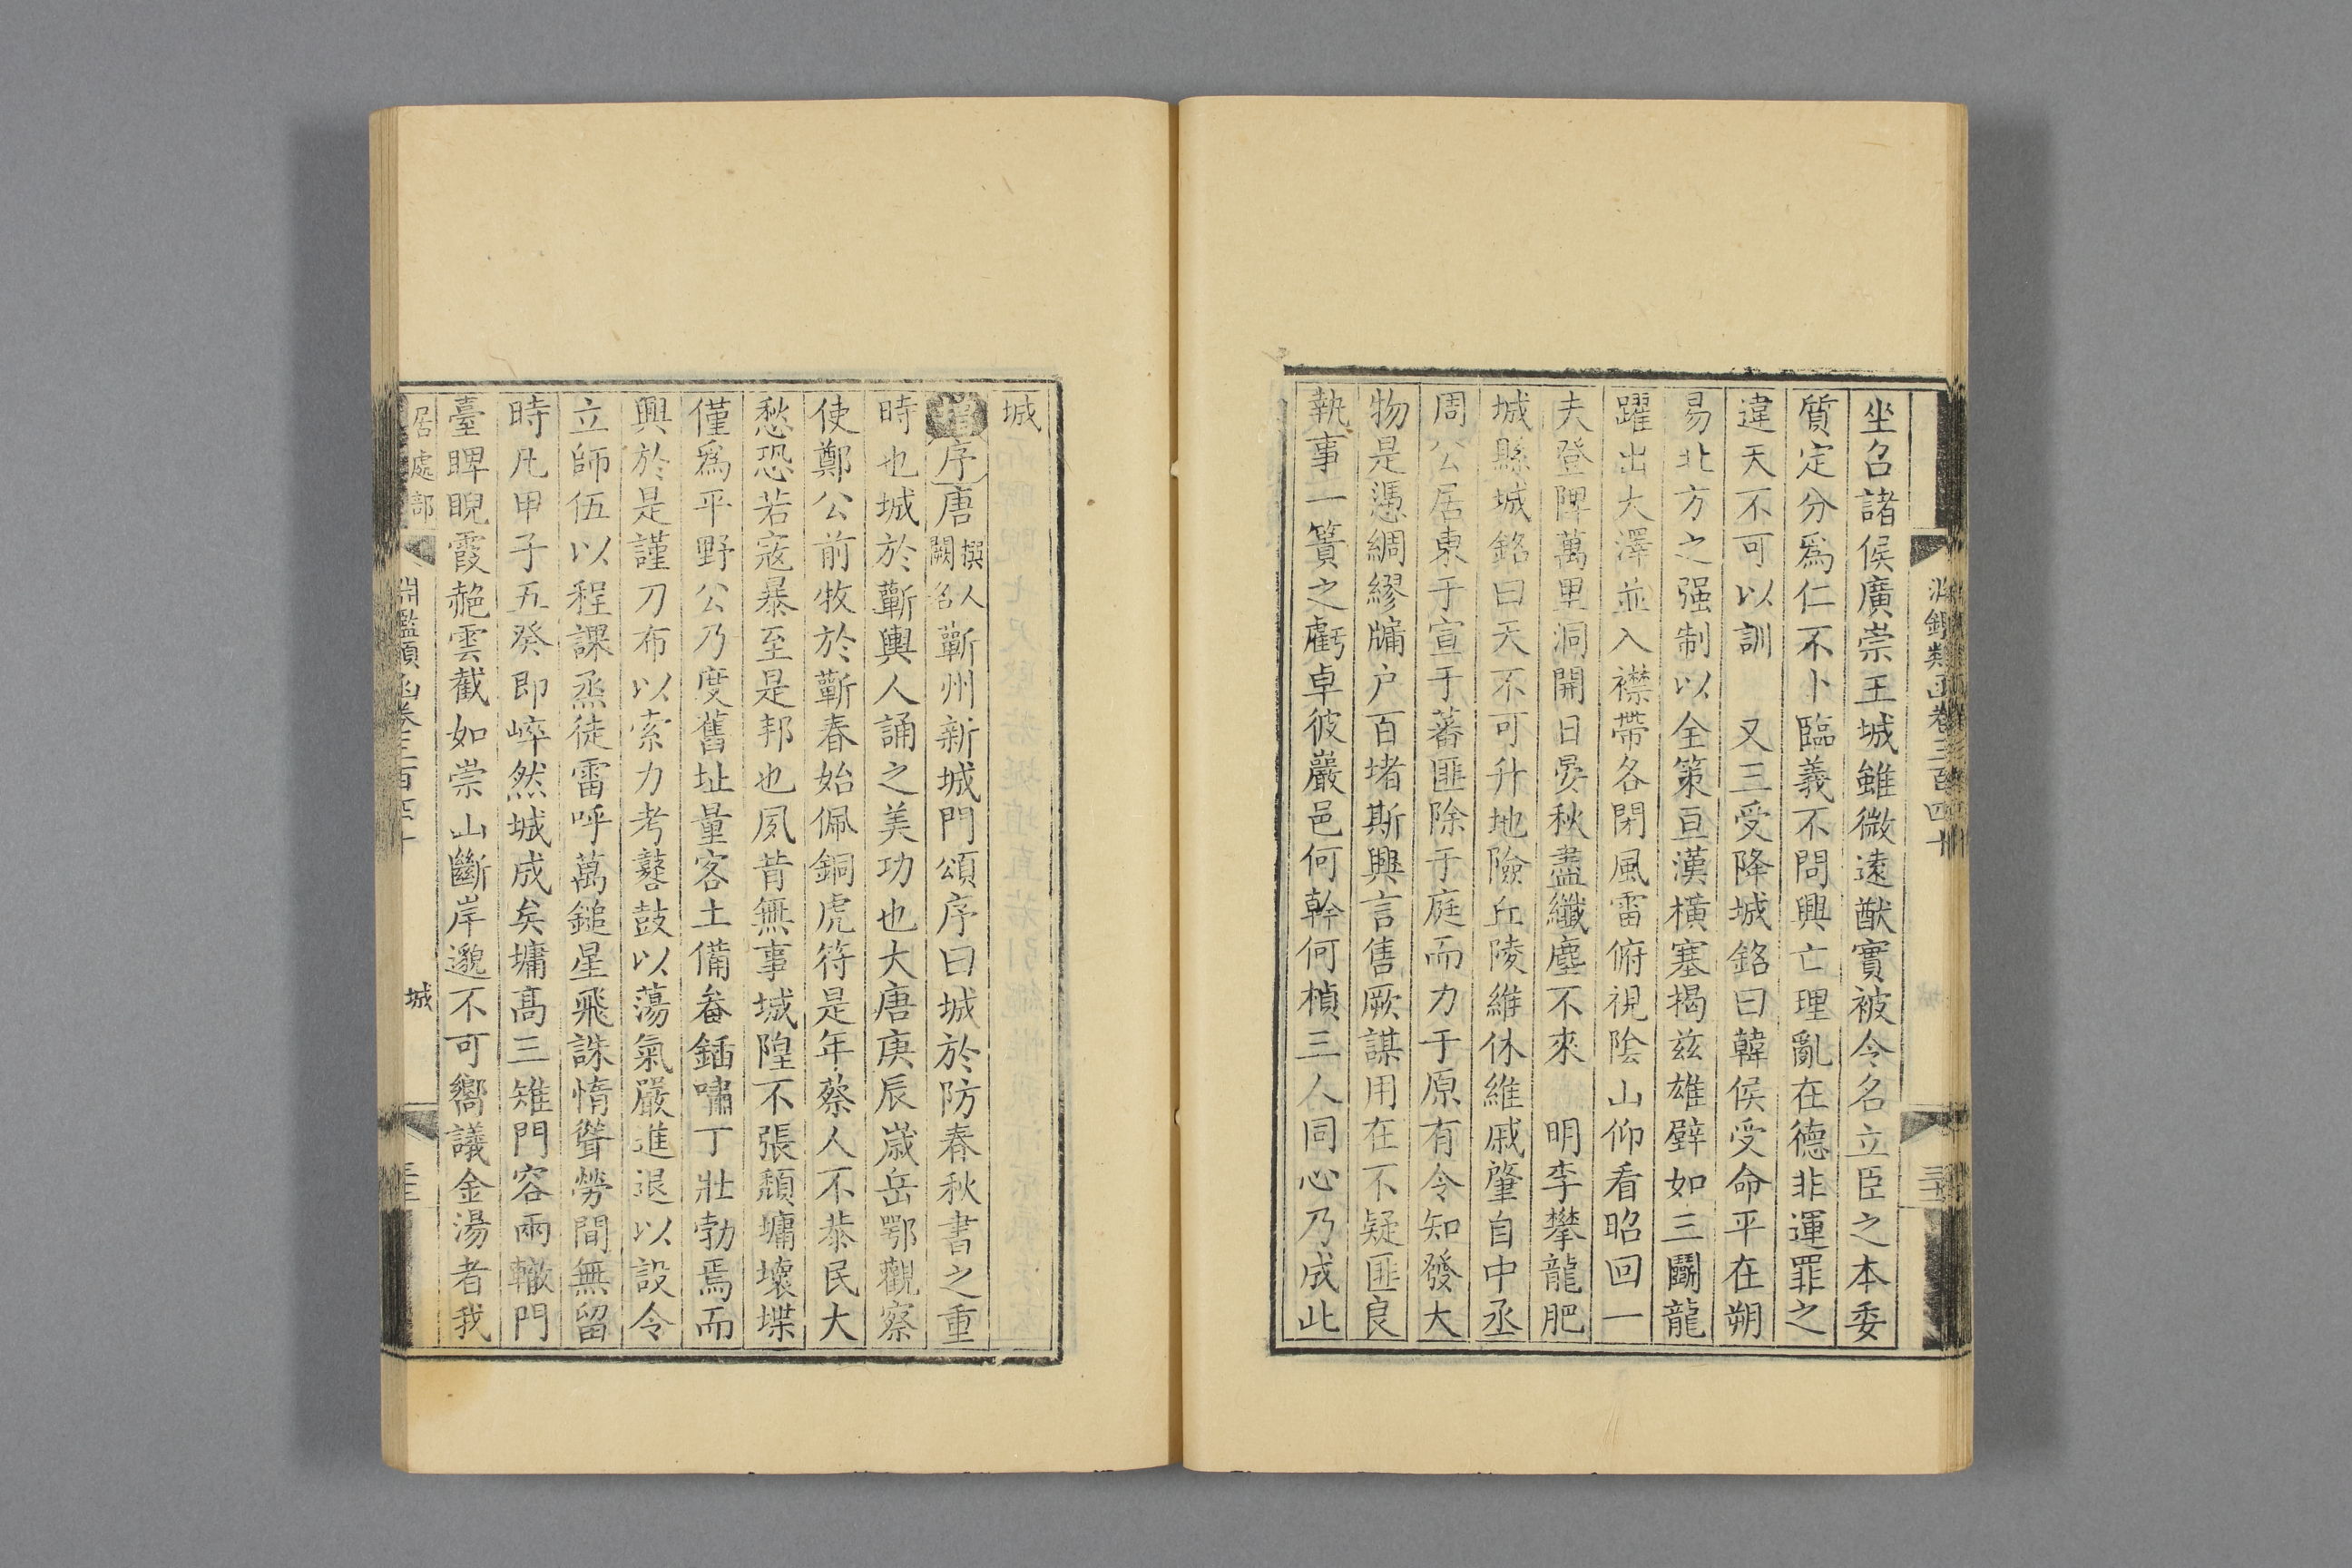 淵鑑類函卷三百四十
坐召諸侯廣崇王城雖微遠猷實被令名立臣之本委
質定分爲仁不卜臨義不問興亡理亂在德非運罪之
違天不可以訓　又三受降城銘曰韓侯受命平在朔
易北方之强制以全策亘漢橫塞揭兹雄壁如三鬬龍
躍出大澤並入襟帶各閉風雷俯視陰山仰看昭回一
夫登陴萬里洞開日晏秋盡纖塵不來　明李攀龍肥
城縣城銘曰天不可升地險丘陵維休維戚肇自中丞
周公居東于宣于蕃匪除于庭而力于原有令知發大
物是憑綢繆牖户百堵斯興言售厥謀用在不疑匪良
執事一簣之虧卓彼巖邑何幹何楨三人同心乃成此
城
增序唐撰人闕名蘄州新城門頌序曰城於防春秋書之重
時也城於蘄輿人誦之美功也大唐庚辰歲岳鄂觀察
使鄭公前牧於蘄春始佩銅虎符是年蔡人不恭民大
愁恐若寇暴至是邦也夙昔無事城隍不張頹墉壞堞
僅爲平野公乃度舊址量客土備畚鍤嘯丁壯勃焉而
興於是謹刀布以索力考鼛鼓以蕩氣嚴進退以設令
立師伍以程課烝徒雷呼萬鎚星飛誅惰聳勞間無留
時凡甲子五癸即崪然城成矣墉高三雉門容兩轍門
臺睥睨霞赩雲截如崇山斷岸邈不可嚮議金湯者我
居處部　淵鑑類函卷三百四十　城